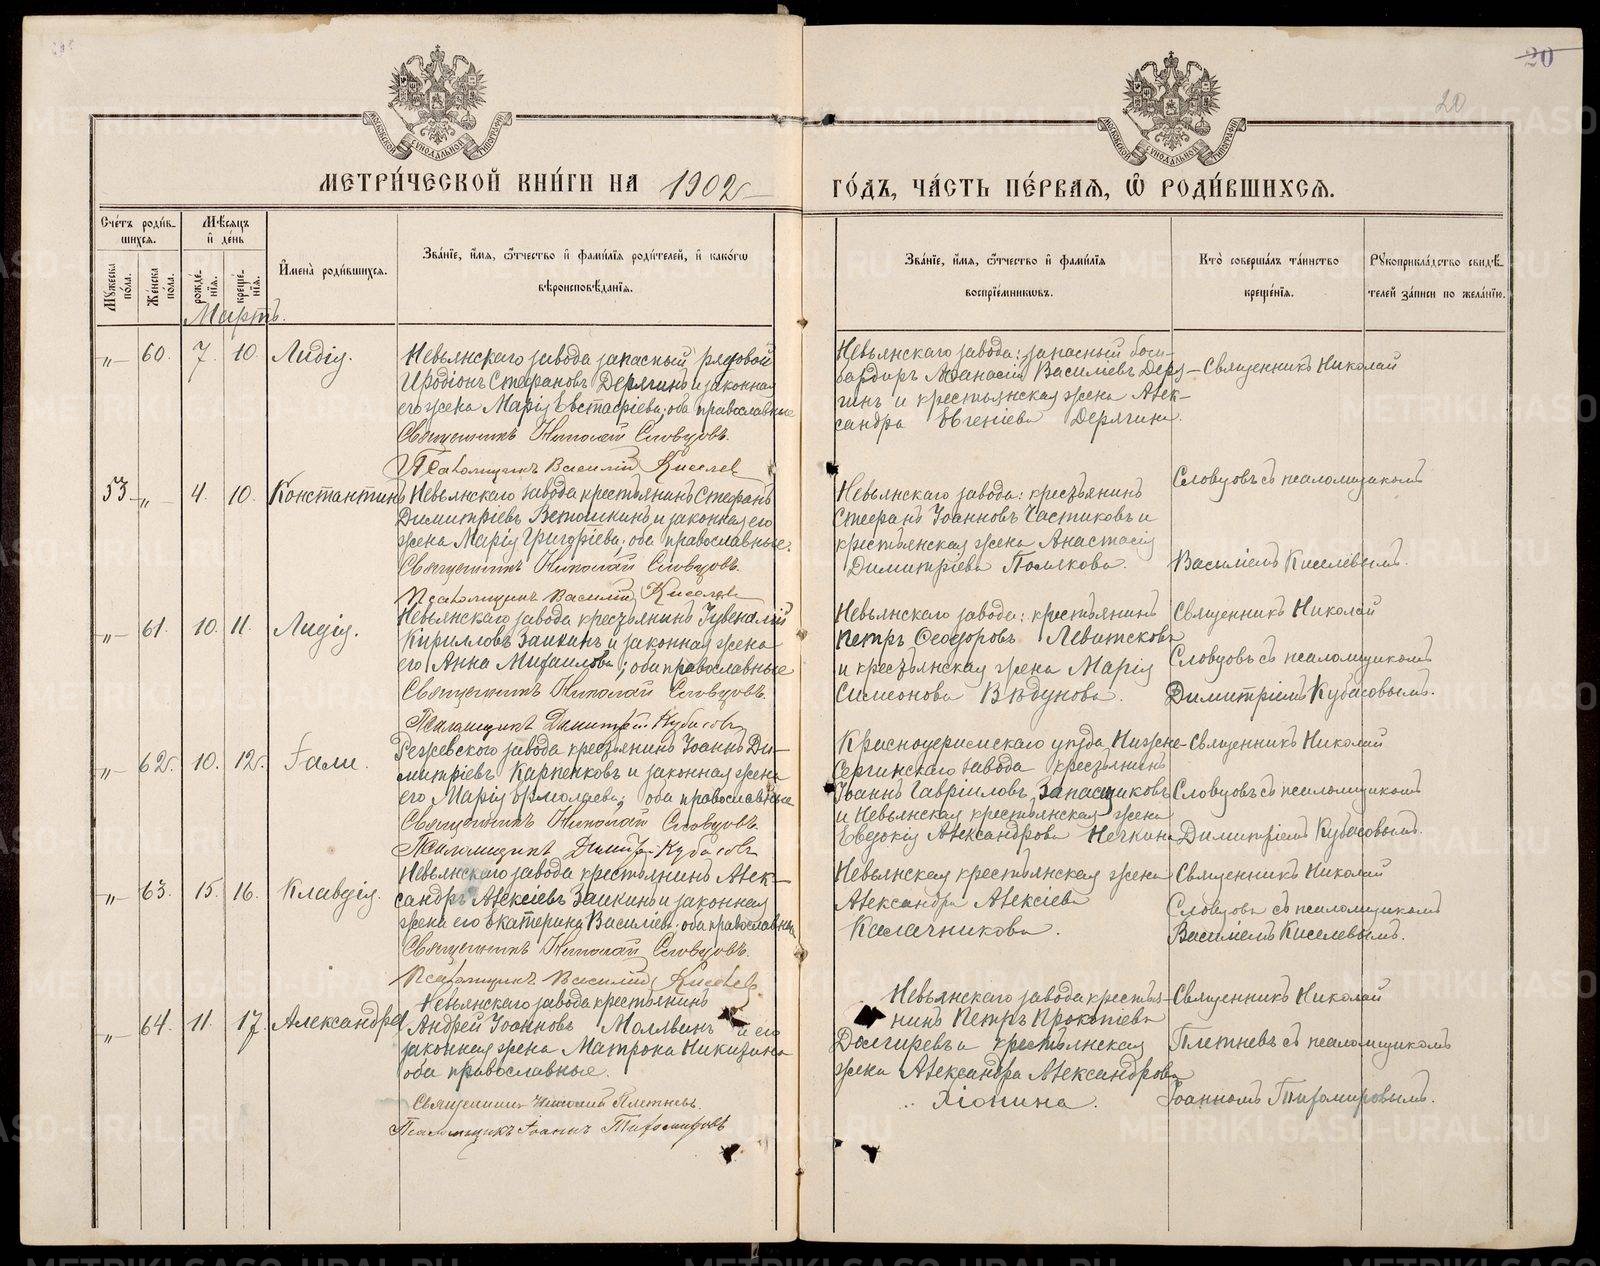 20
20
МОСКОВСКОЙ СѴНОДАЛЬНОЙ ТИПОГРАФІИ
МОСКОВСКОЙ СѴНОДАЛЬНОЙ ТИПОГРАФІИ
МЕТРИ́ЧЕСКОЙ КНИ́ГИ НА 1902 ГО́ДЪ, ЧА́СТЬ ПЕ́РВАѦ, Ѽ РОДИ́ВШИХСѦ.
Сче́тъ роди́в-
шихсѧ.
Мѣ́сѧцъ
и҆ де́нь
Му́жеска
по́ла.
Же́нска
по́ла.
рожде́-
нїѧ.
креще́-
нїѧ.
И҆мена̀ роди́вшихсѧ.
Зва́нїе, и҆́мѧ, ѻ҆́тчество и҆ фами́лїѧ роди́телей, и҆ како́гѡ
вѣроисповѣ́данїѧ.
Зва́нїе, и҆́мѧ, ѻ҆́тчество и҆ фами́лїѧ
воспрїе́мникѡвъ.
Кто̀ соверша́лъ та́инство
креще́нїѧ.
Рꙋкоприкла́дство свидѣ́-
телей за́писи по жела́нїю.
Мартъ.
"— 60. 7. 10. Лидія.
Невьянскаго завода запасный рядовой
Иродіонъ Стефановъ Дерягинъ и законная
его жена Марія Евстафіева; оба православные
Священникъ Николай Словцовъ.
Псаломщикъ Василій Киселев
Невьянскаго завода: запасный бом-
бардиръ Афанасій Василіевъ Деря-
гинъ и крестьянская жена Алек-
сандра Евгеніева Дерягина.
Священникъ Николай
Словцовъ съ псаломщикомъ
Василіемъ Киселевымъ.
53 "— 4. 10. Константинъ
Невьянскаго завода крестьянинъ Стефанъ
Димитріевъ Ветошкинъ и законная его
жена Марія Григоріева; оба православные.
Священникъ Николай Словцовъ.
Псаломщикъ Василій Киселев
Невьянскаго завода: крестьянинъ
Стефанъ Іоанновъ Частиковъ и
крестьянская жена Анастасія
Димитріева Полякова.
"— 61. 10. 11. Лидія.
Невьянскаго завода крестьянинъ Іувеналій
Кирилловъ Заикинъ и законная жена
его Анна Михаилова; оба православные
Священникъ Николай Словцовъ.
Псаломщикъ Димитрій Кубасовъ
Невьянскаго завода: крестьянинъ
Петръ Ѳеодоровъ Левитсковъ
и крестьянская жена Марія
Симеонова Вѣдунова.
Священникъ Николай
Словцовъ съ псаломщикомъ
Димитріемъ Кубасовымъ.
"— 62. 10. 12.
Режевского завода крестьянинъ Іоаннъ Ди-
митріевъ Карпенковъ и законная жена
его Марія Ермолаева; оба православные
Священникъ Николай Словцовъ.
Псаломщикъ Димитрій Кубасовъ
Красноуфимскаго уѣзда Нижне-
Сергинскаго завода крестьянинъ
Іоаннъ Гавріиловъ Запащиковъ
и Невьянская крестьянская жена
Евдокія Александрова Нечкина
Священникъ Николай
Словцовъ съ псаломщикомъ
Димитріемъ Кубасовымъ.
"— 63. 15. 16. Клавдія.
Невьянскаго завода крестьянинъ Алек-
сандръ Алексіевъ Заикинъ и законная
жена его Екатерина Василіева; оба православные
Священникъ Николай Словцовъ.
Псаломщикъ Василій Киселев
Невьянская крестьянская жена
Александра Алексіева
Калачникова.
Священникъ Николай
Словцовъ съ псаломщикомъ
Василіемъ Киселевымъ.
"— 64. 11. 17. Александра
Невьянскаго завода крестьянинъ
Андрей Іоанновъ Молявинъ и его
законная жена Матрона Никитина
оба православные.
Священникъ Николай Плетневъ.
Псаломщикъ Іоаннъ Тихомировъ
Невьянскаго завода крестья-
нинъ Петръ Прокопіевъ
Долгиревъ и крестьянская
жена Александра Александрова
Хіонина.
Священникъ Николай
Плетневъ съ псаломщикомъ
Іоанномъ Тихомировымъ.
METRIKI.GASO-URAL.RU